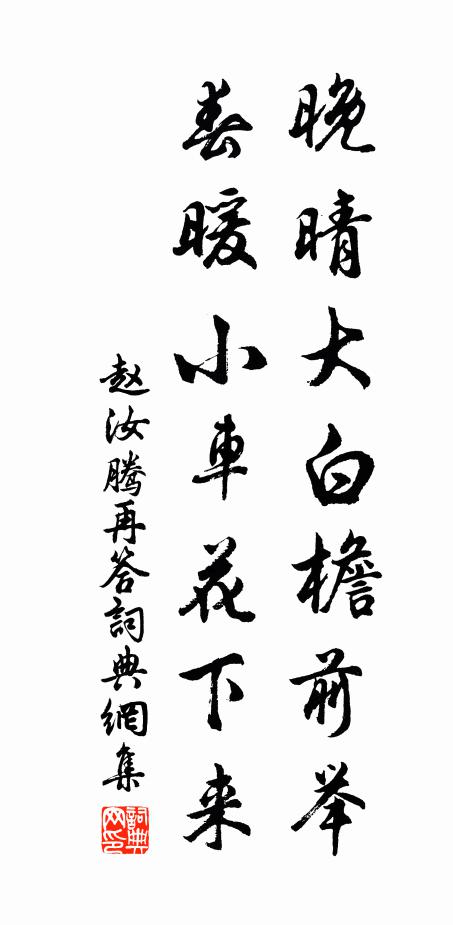 晚晴大白檐前举
春暖小車花下来
赵汝騰再答詞典網集
詞典网印